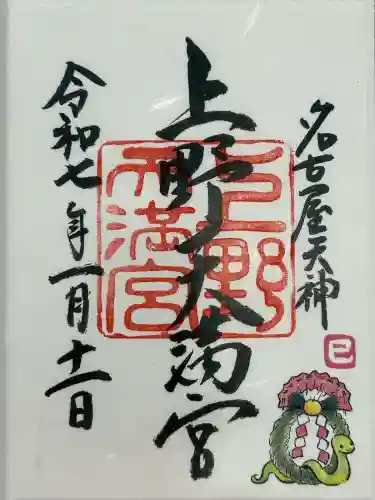 名古屋天神
巳
上野天満宮
上野天満宮
令和七年一月十一日